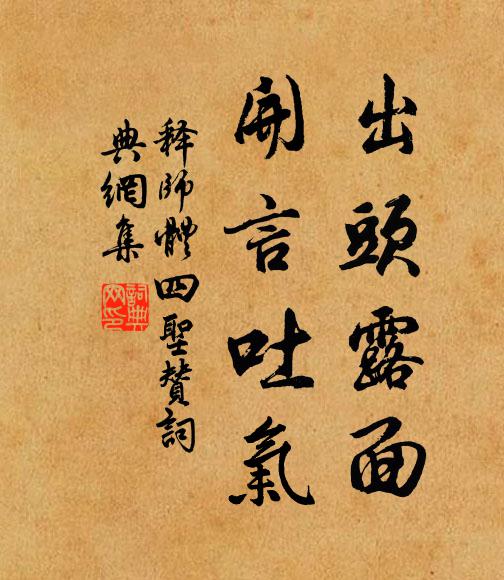 出頭露面
開言吐氣
释師體四聖贊詞
典網集
詞典
网印